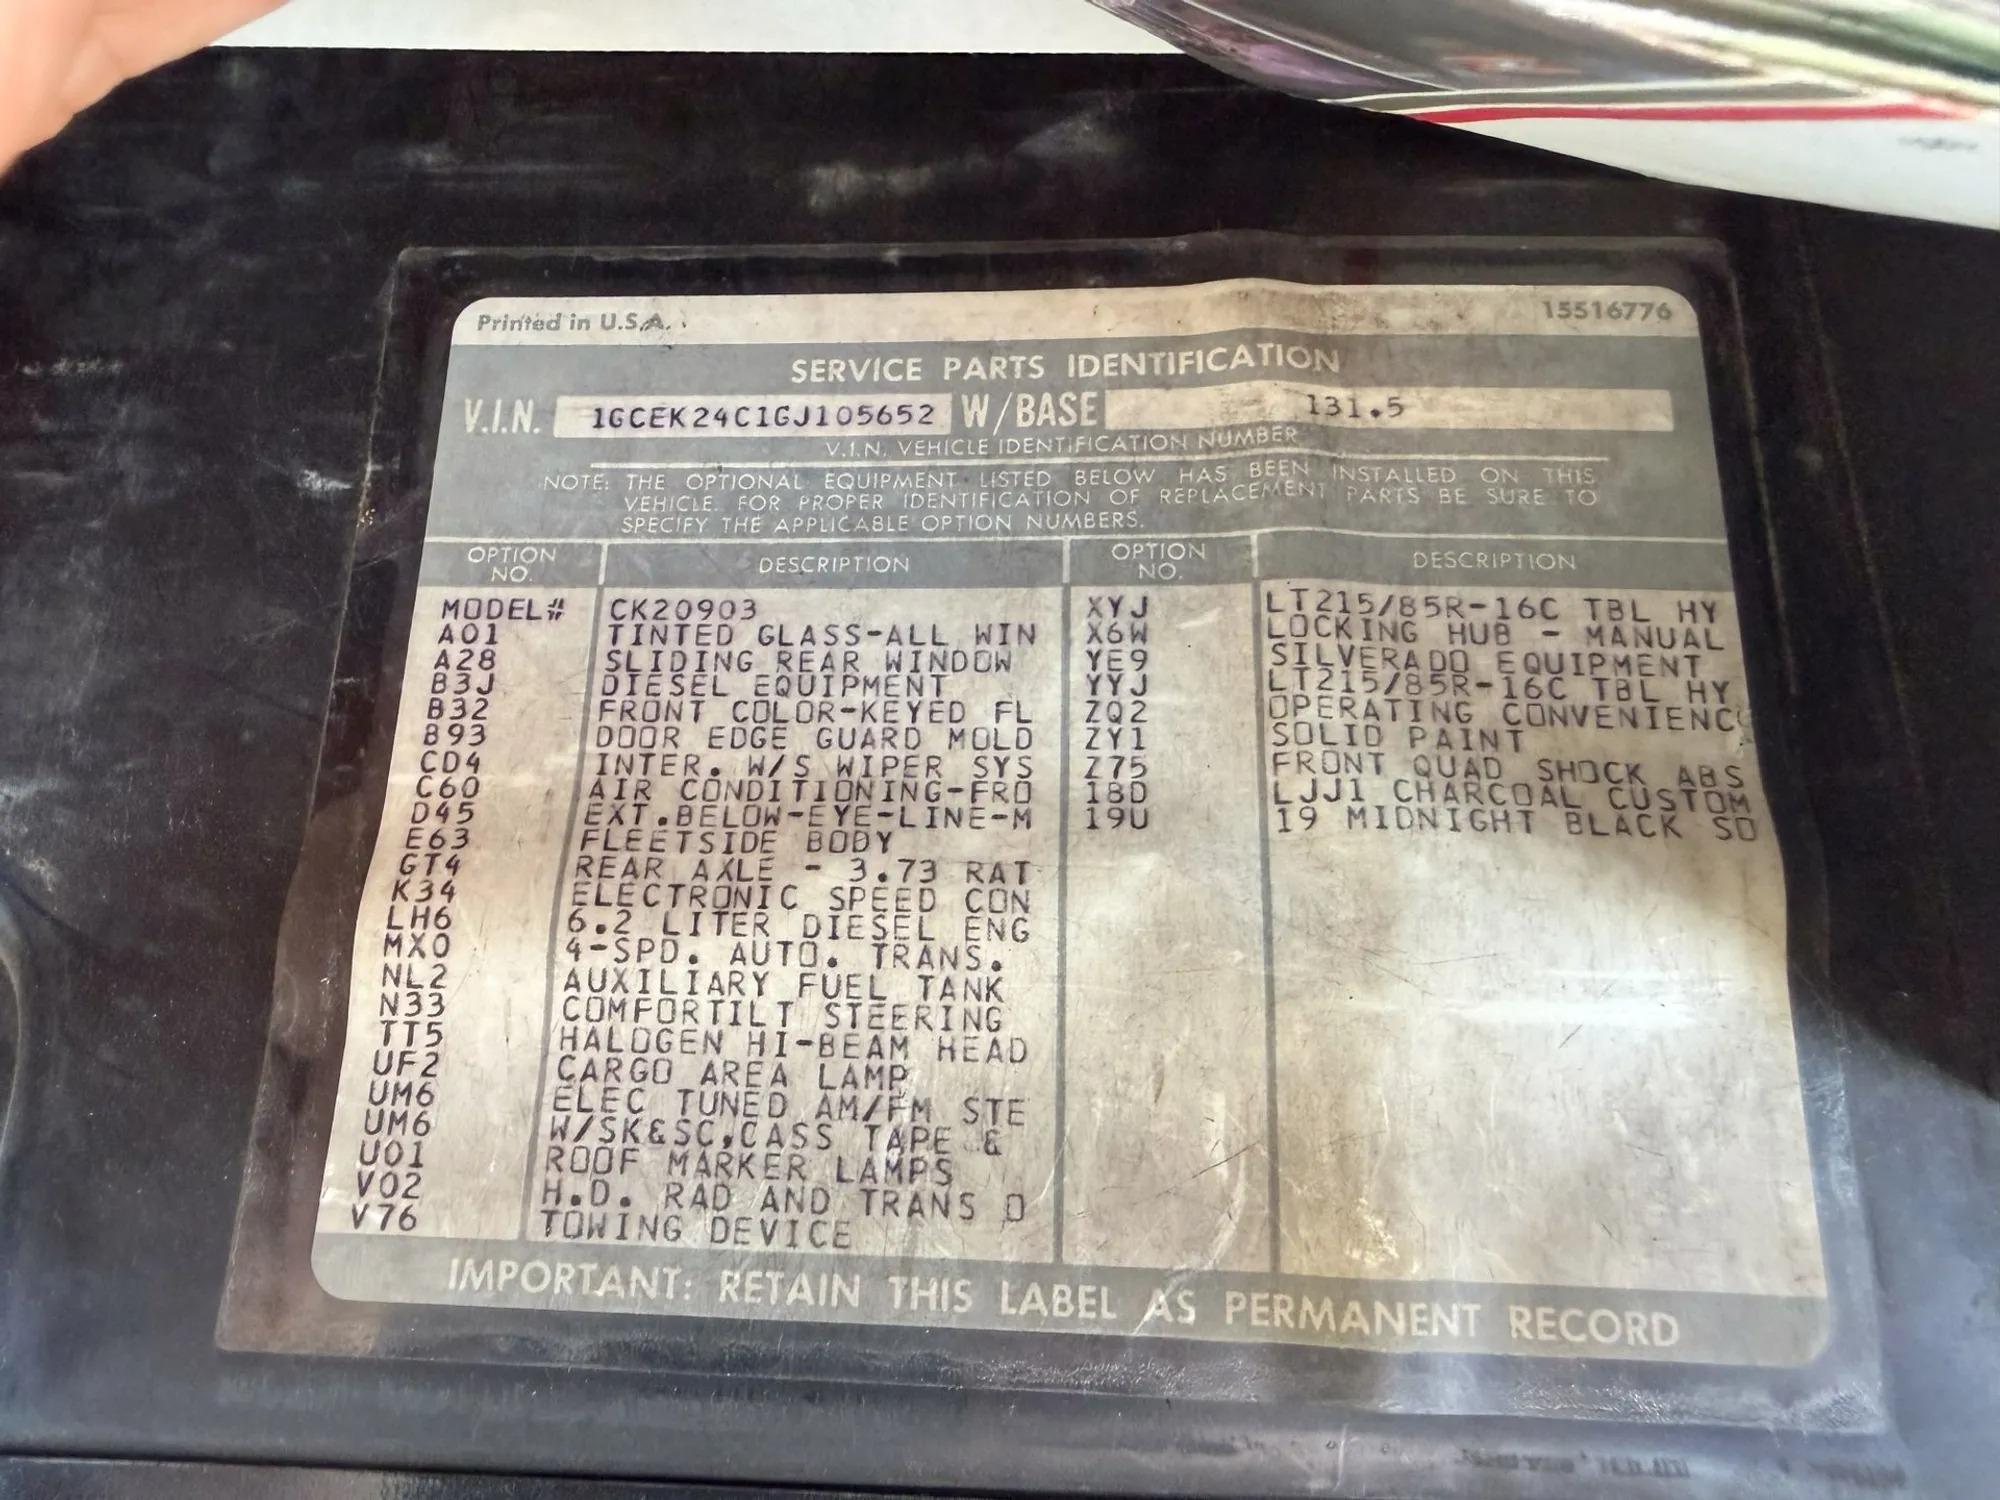 Printed in U.S.A.
15516776
SERVICE PARTS IDENTIFICATION
V.I.N. 1GCEK24C1GJ105652 W/BASE 131.5
V.I.N. VEHICLE IDENTIFICATION NUMBER
NOTE: THE OPTIONAL EQUIPMENT LISTED BELOW HAS BEEN INSTALLED ON THIS
VEHICLE. FOR PROPER IDENTIFICATION OF REPLACEMENT PARTS BE SURE TO
SPECIFY THE APPLICABLE OPTION NUMBERS.
OPTION NO. DESCRIPTION
MODEL# CK20903
A01 TINTED GLASS-ALL WIN
A28 SLIDING REAR WINDOW
B3J DIESEL EQUIPMENT
B32 FRONT COLOR-KEYED FL
B93 DOOR EDGE GUARD MOLD
CD4 INTER. W/S WIPER SYS
C60 AIR CONDITIONING-FRO
D45 EXT.BELOW-EYE-LINE-M
E63 FLEETSIDE BODY
GT4 REAR AXLE - 3.73 RAT
K34 ELECTRONIC SPEED CON
LH6 6.2 LITER DIESEL ENG
MX0 4-SPD. AUTO. TRANS.
NL2 AUXILIARY FUEL TANK
N33 COMFORTILT STEERING
TT5 HALOGEN HI-BEAM HEAD
UF2 CARGO AREA LAMP
UM6 ELEC TUNED AM/FM STE
UM6 W/SK&SC,CASS TAPE &
U01 ROOF MARKER LAMPS
V02 H.D. RAD AND TRANS O
V76 TOWING DEVICE
OPTION NO. DESCRIPTION
XYJ LT215/85R-16C TBL HY
X6W LOCKING HUB - MANUAL
YE9 SILVERADO EQUIPMENT
YYJ LT215/85R-16C TBL HY
ZQ2 OPERATING CONVENIENC
ZY1 SOLID PAINT
Z75 FRONT QUAD SHOCK ABS
18D LJJ1 CHARCOAL CUSTOM
19U 19 MIDNIGHT BLACK SO
IMPORTANT: RETAIN THIS LABEL AS PERMANENT RECORD